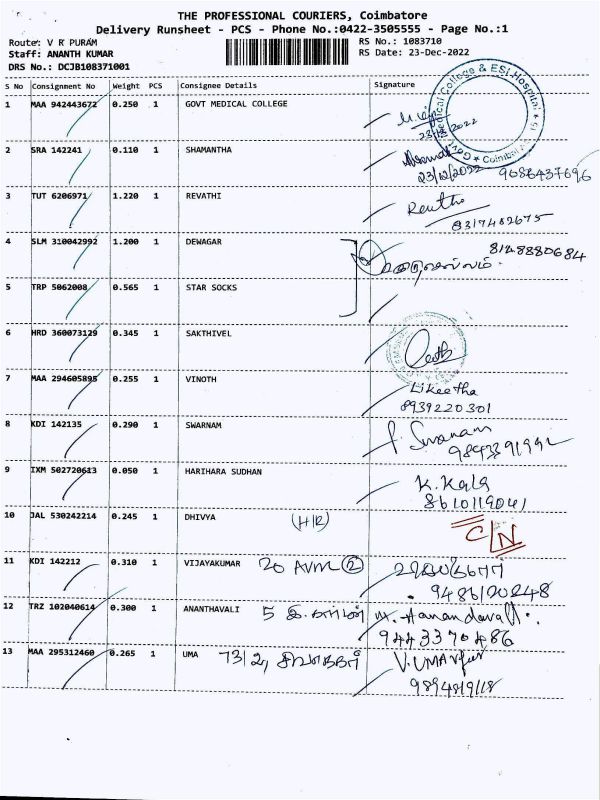 THE PROFESSIONAL COURIERS, Coimbatore
Delivery Runsheet - PCS - Phone No.:0422-3505555 - Page No.:1
Route: V R PURAM
RS No.: 1083710
Staff: ANANTH KUMAR
RS Date: 23-Dec-2022
DRS No.: DCJB108371001
S No Consignment No Weight PCS Consignee Details Signature
1 MAA 942443672 0.250 1 GOVT MEDICAL COLLEGE
23/12/2022
Medical College & ESI Hospital
Coimbatore
2 SRA 142241 0.110 1 SHAMANTHA
23/12/2022 9086437696
3 TUT 6206971 1.220 1 REVATHI
Revathi
8317482675
4 SLM 310042992 1.200 1 DEWAGAR
8148880684
5 TRP 5062008 0.565 1 STAR SOCKS
6 HRD 360073129 0.345 1 SAKTHIVEL
7 MAA 294605895 0.255 1 VINOTH
Likeetha
8939220301
8 KDI 142135 0.290 1 SWARNAM
P. Swarnam
9843391992
9 IXM 502720613 0.050 1 HARIHARA SUDHAN
K. Kala
8610119041
10 JAL 530242214 0.245 1 DHIVYA (H/R) C/N
11 KDI 142212 0.310 1 VIJAYAKUMAR 20 AVM 2
9486120248
12 TRZ 102040614 0.300 1 ANANTHAVALI 5
9443370486
13 MAA 295312460 0.265 1 UMA 73/2,
V. UMA